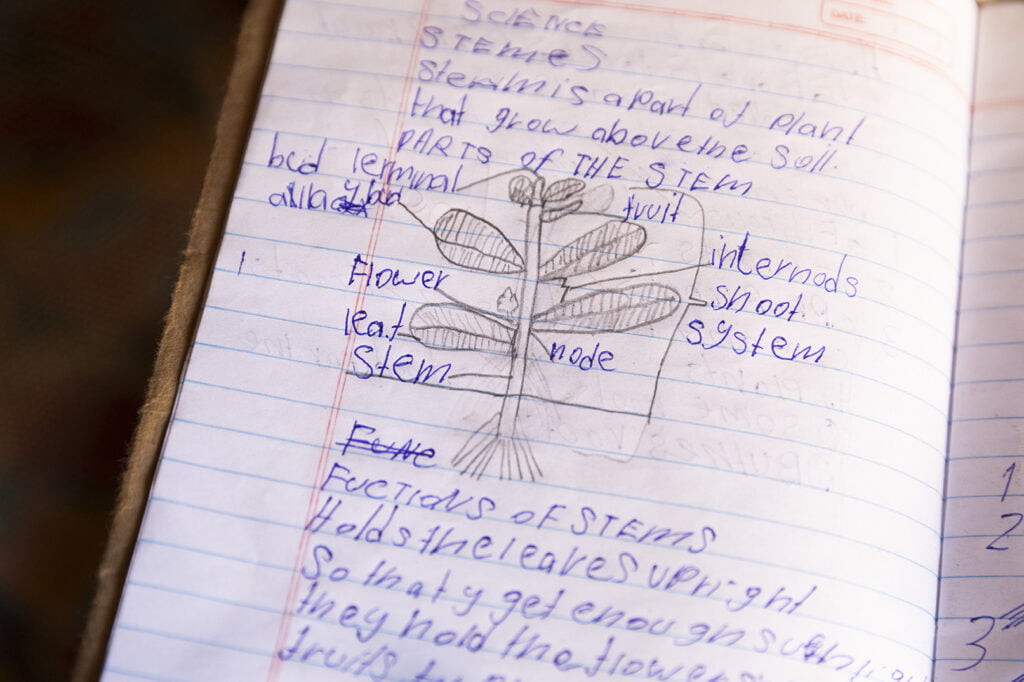 DATE:
SCIENCE
STEMES
Stem is a part of plant
that grow above the Soil.
PARTS of THE STEM
bud terminal
fruit
Flower
internods
leaf
shoot
system
Stem
node
Func
FUCTIONS OF STEMS
Holds the leaves upright
So that y get enough
they hold the flowers
fruits
1
2
3